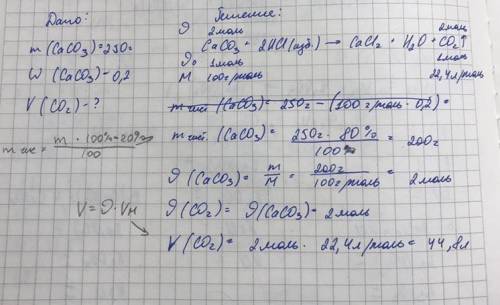 Дано:
m (CaCO₃)=250г
W (CaCO₃)-0,2
V (CO₂)-?
m чис = m · 100%-20% / 100
V=υ·Vм
Решение:
υ 2моль 2моль
CaCO₃ + 2HCl (изб.) → CaCl₂ + H₂O + CO₂↑
υ₀ 1моль 1моль
M 100г/моль 22,4л/моль
m чист (CaCO₃)= 250г - (100г/моль · 0,2)=
m чист. (CaCO₃)= 250г · 80% / 100% = 200г
υ (CaCO₃)= m / M = 200г / 100г/моль = 2моль
υ (CO₂)= υ (CaCO₃)= 2моль
V (CO₂)= 2моль · 22,4л/моль= 44,8л